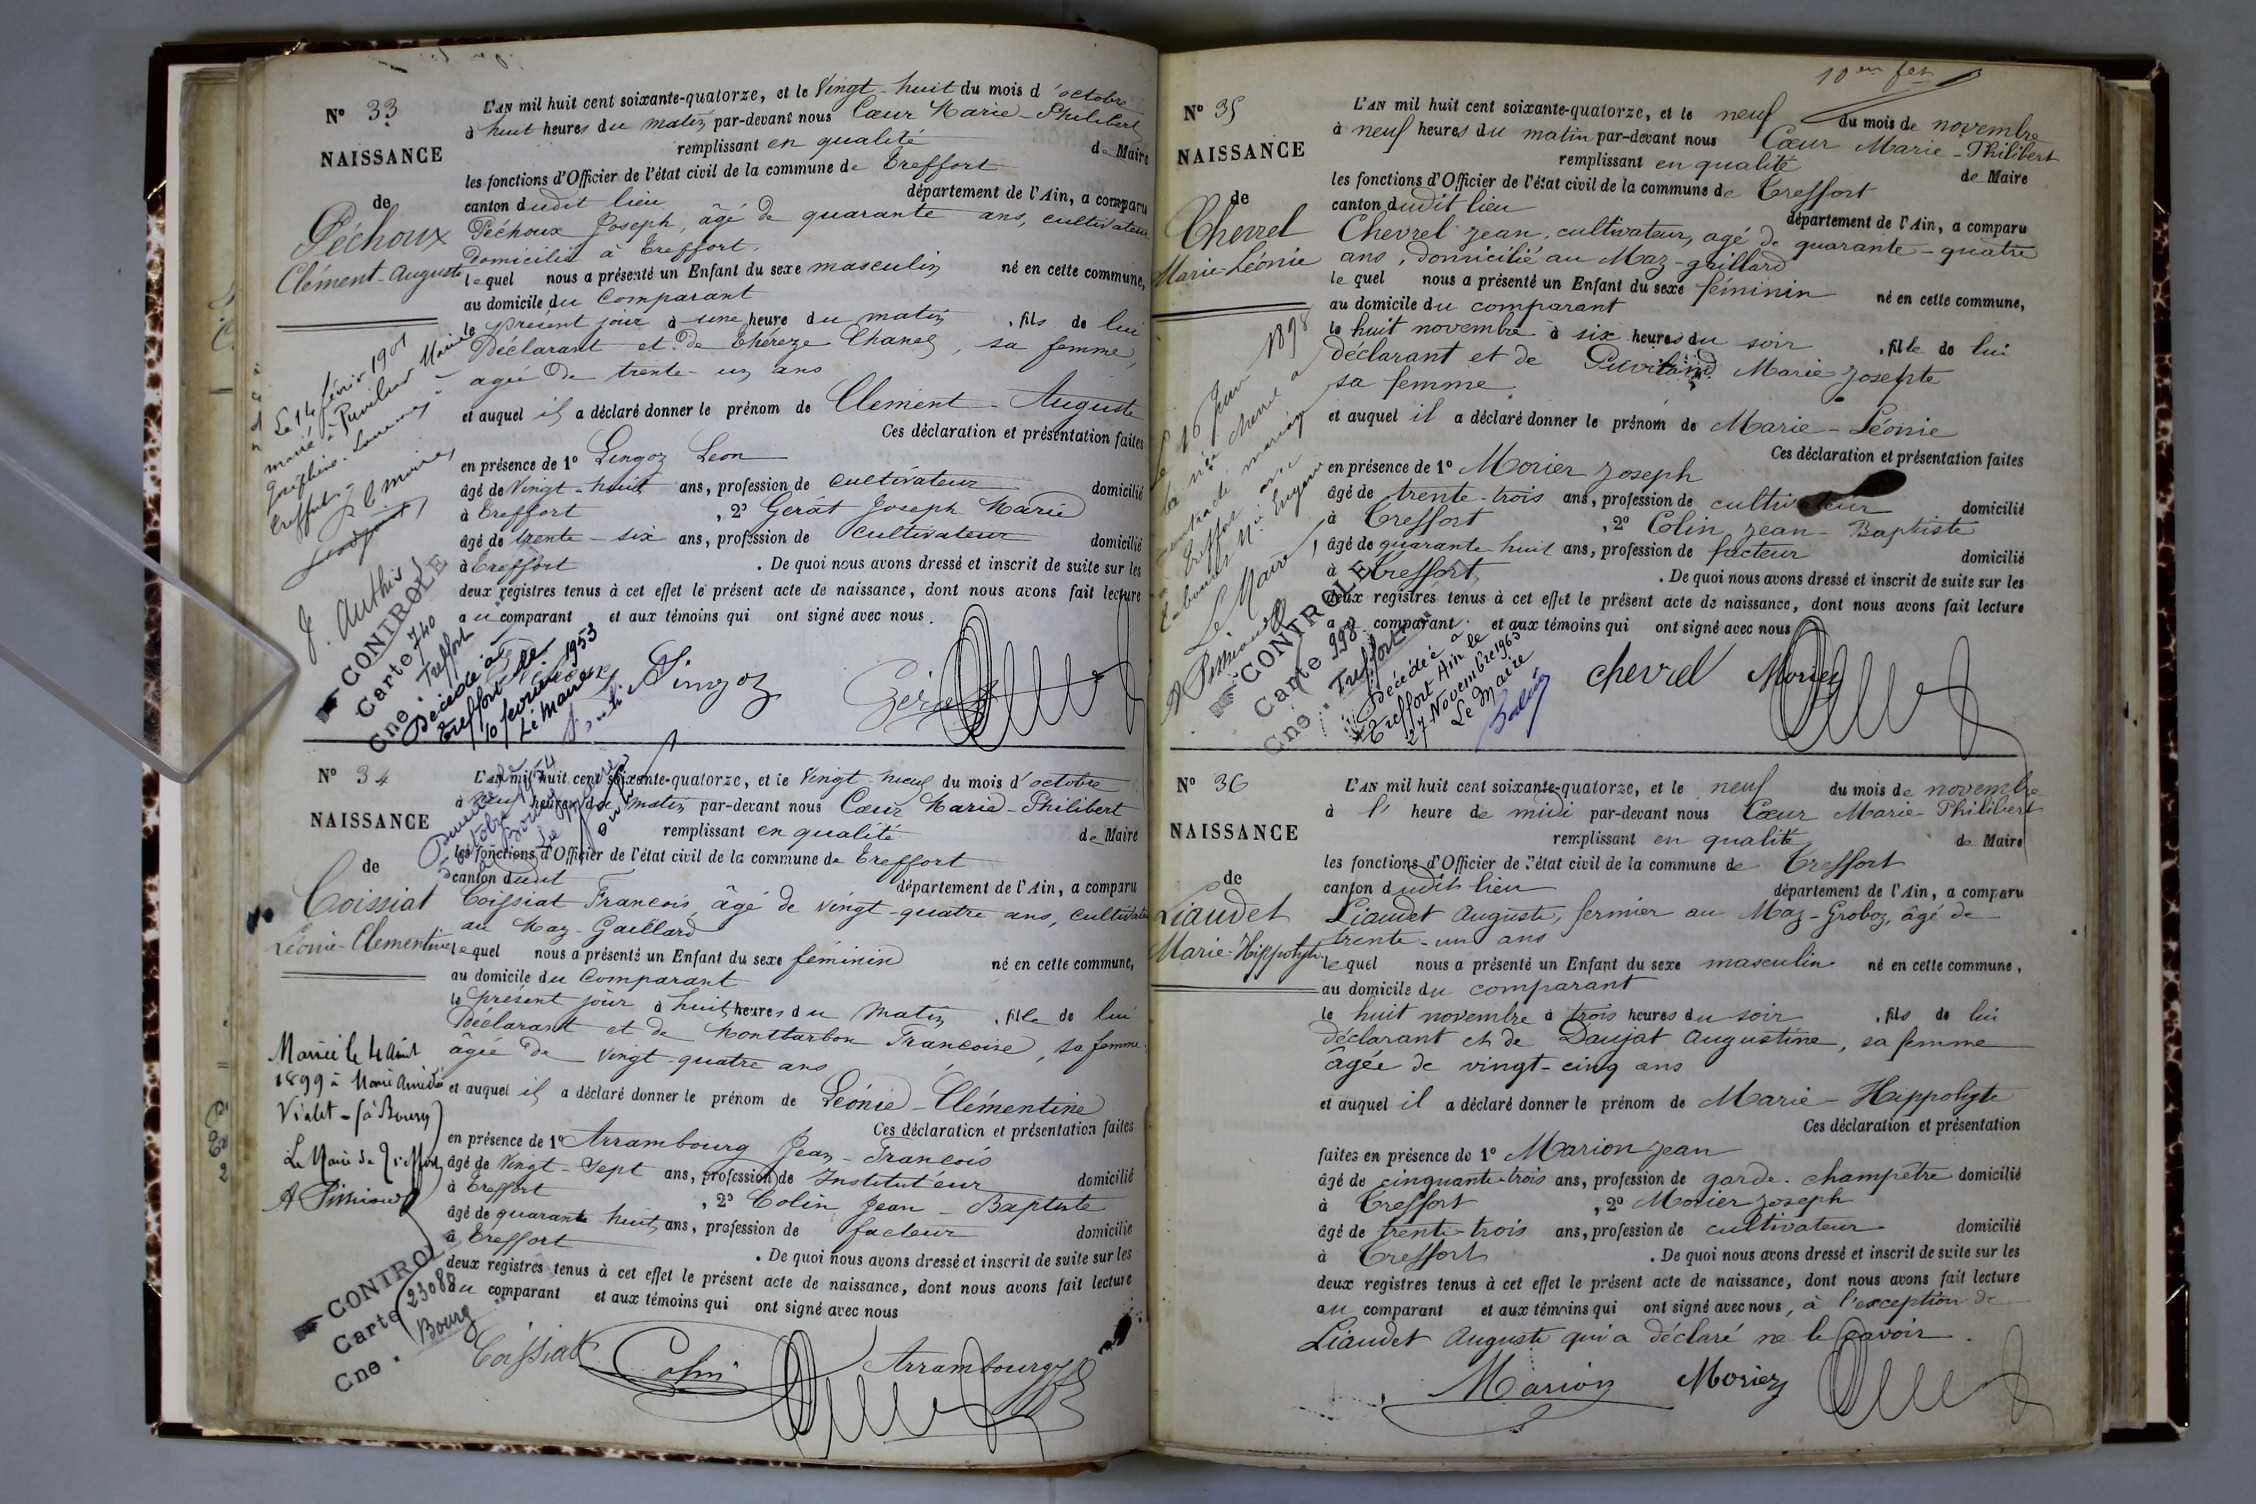 N° 33
NAISSANCE
de
Péchoux
Clément-Auguste
L'AN mil huit cent soixante-quatorze, et le Vingt-huit du mois d'octobre
à huit heures du matin par-devant nous Cœur Marie-Philibert
remplissant en qualité de Maire
les fonctions d'Officier de l'état civil de la commune de Treffort
canton dudit lieu département de l'Ain, a comparu
Péchoux Joseph, âgé de quarante ans, cultivateur
domicilié à Treffort.
lequel nous a présenté un Enfant du sexe masculin né en cette commune,
au domicile du Comparant
le présent jour à une heure du matin, fils de lui
Déclarant et de Théreze Chanel, sa femme,
agée de trente-un ans
et auquel il a déclaré donner le prénom de Clément-Auguste
Ces déclaration et présentation faites
en présence de 1° Lingoz Leon
âgé de Vingt-huit ans, profession de cultivateur domicilié
à Treffort, 2° Gerât Joseph Marie
âgé de trente-six ans, profession de cultivateur domicilié
à Treffort. De quoi nous avons dressé et inscrit de suite sur les
deux registres tenus à cet effet le présent acte de naissance, dont nous avons fait lecture
au comparant et aux témoins qui ont signé avec nous.
Le 14 février 1901
marié à Puvilland Marie
Joséphine-
Treffort-
Le Maire,
J. Authier
CONTROLE
Carte 740
Cne. Treffort
Décédé à
Treffort le
10 février 1953
Le Maire
Lingoz
N° 34
NAISSANCE
de
Coissiat
Léonie-Clementine
L'AN mil huit cent soixante-quatorze, et le Vingt-neuf du mois d'octobre
à neuf heures du matin par-devant nous Cœur Marie-Philibert
remplissant en qualité de Maire
les fonctions d'Officier de l'état civil de la commune de Treffort
canton dudit département de l'Ain, a comparu
Coissiat Francois, âgé de vingt-quatre ans, cultivateur
au Maz-Gaillard
lequel nous a présenté un Enfant du sexe féminin né en cette commune,
au domicile du Comparant
le présent jour à huit heures du matin, fille de lui
Déclarant et de Montbarbon Francoise, sa femme,
âgée de vingt-quatre ans
et auquel il a déclaré donner le prénom de Léonie-Clémentine
Ces déclaration et présentation faites
en présence de 1° Arrambourg Jean-Francois
âgé de Vingt-sept ans, profession de Instituteur domicilié
à Treffort, 2° Colin Jean-Baptiste
âgé de quarante huit ans, profession de facteur domicilié
à Treffort. De quoi nous avons dressé et inscrit de suite sur les
deux registres tenus à cet effet le présent acte de naissance, dont nous avons fait lecture
au comparant et aux témoins qui ont signé avec nous
Mariée le 4 Août
1899 à Marie Amédée
Violet-(à Bourg)
Le Maire de Treffort
CONTROLE
Carte 23080
Cne. Bourg
Coissiat Colin Arrambourg
10me fet
N° 35
NAISSANCE
de
Chevrel
Marie-Léonie
L'AN mil huit cent soixante-quatorze, et le neuf du mois de novembre
à neuf heures du matin par-devant nous Cœur Marie-Philibert
remplissant en qualité de Maire
les fonctions d'Officier de l'état civil de la commune de Treffort
canton dudit lieu département de l'Ain, a comparu
Chevrel Jean, cultivateur, agé de quarante-quatre
ans, domicilié au Maz-gaillard
le quel nous a présenté un Enfant du sexe féminin né en cette commune,
au domicile du comparant
le huit novembre à six heures du soir, fille de lui
déclarant et de Puvilland Marie Josephte
sa femme
et auquel il a déclaré donner le prénom de Marie-Léonie
Ces déclaration et présentation faites
en présence de 1° Morier Joseph
âgé de trente-trois ans, profession de cultivateur domicilié
à Treffort, 2° Colin Jean-Baptiste
âgé de quarante huit ans, profession de facteur domicilié
à Treffort. De quoi nous avons dressé et inscrit de suite sur les
deux registres tenus à cet effet le présent acte de naissance, dont nous avons fait lecture
a comparant et aux témoins qui ont signé avec nous
1898
Le Maire,
CONTROLE
Carte 998
Cne. Treffort
Décédée à
Treffort Ain le
27 Novembre 1963
Le Maire
chevrel Morier
N° 36
NAISSANCE
de
Liaudet
Marie-Hippolyte
L'AN mil huit cent soixante-quatorze, et le neuf du mois de novembre
à l' heure de midi par-devant nous Cœur Marie-Philibert
remplissant en qualité de Maire
les fonctions d'Officier de l'état civil de la commune de Treffort
canton dudit lieu département de l'Ain, a comparu
Liaudet Auguste, fermier au Maz-Groboz, âgé de
trente-un ans
lequel nous a présenté un Enfant du sexe masculin né en cette commune,
au domicile du comparant
le huit novembre à trois heures du soir, fils de lui
déclarant et de Daujat Augustine, sa femme
âgée de vingt-cinq ans
et auquel il a déclaré donner le prénom de Marie-Hippolyte
Ces déclaration et présentation
faites en présence de 1° Marion Jean
âgé de cinquante-trois ans, profession de garde-champêtre domicilié
à Treffort, 2° Morier Joseph
âgé de trente-trois ans, profession de cultivateur domicilié
à Treffort. De quoi nous avons dressé et inscrit de suite sur les
deux registres tenus à cet effet le présent acte de naissance, dont nous avons fait lecture
au comparant et aux témoins qui ont signé avec nous, à l'exception de
Liaudet Auguste qui a déclaré ne le savoir.
Marion Morier